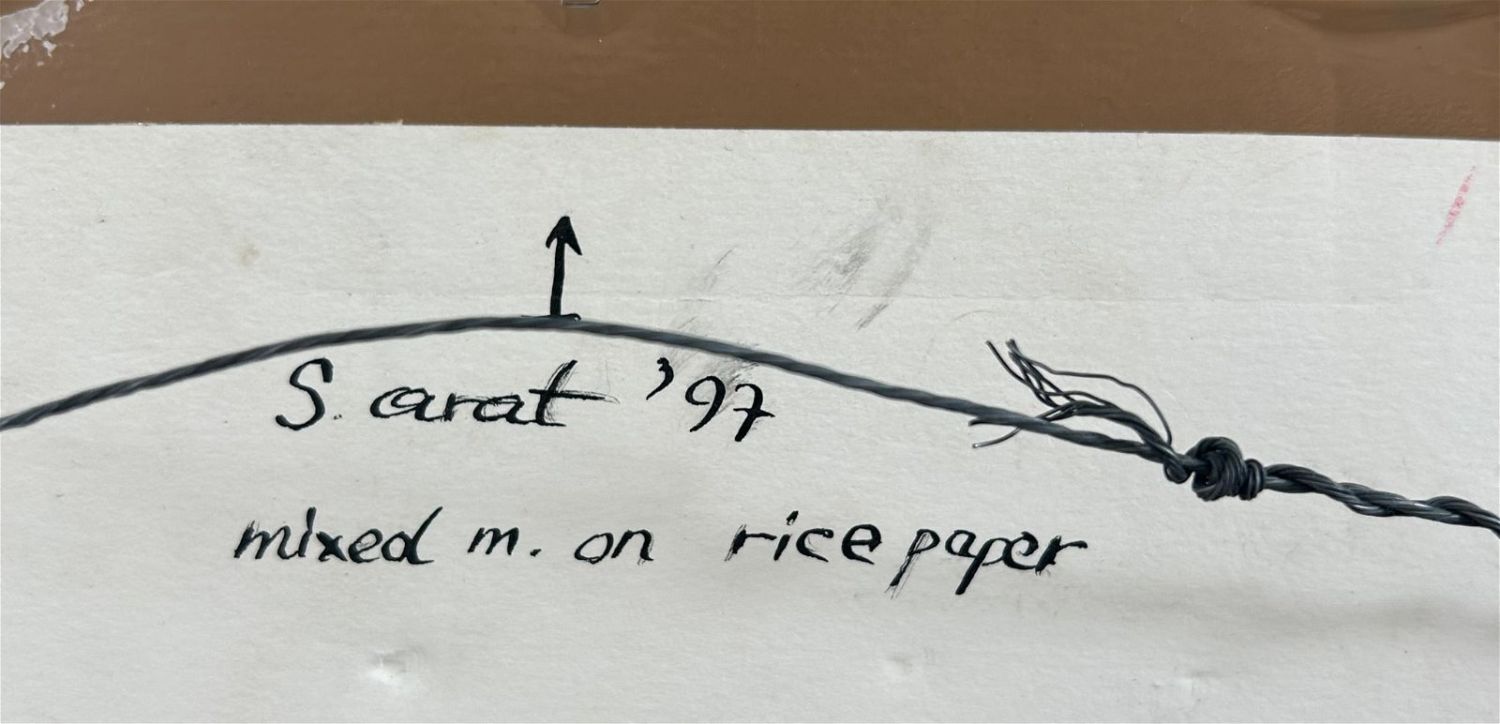 S. arat '97
mixed m. on rice paper